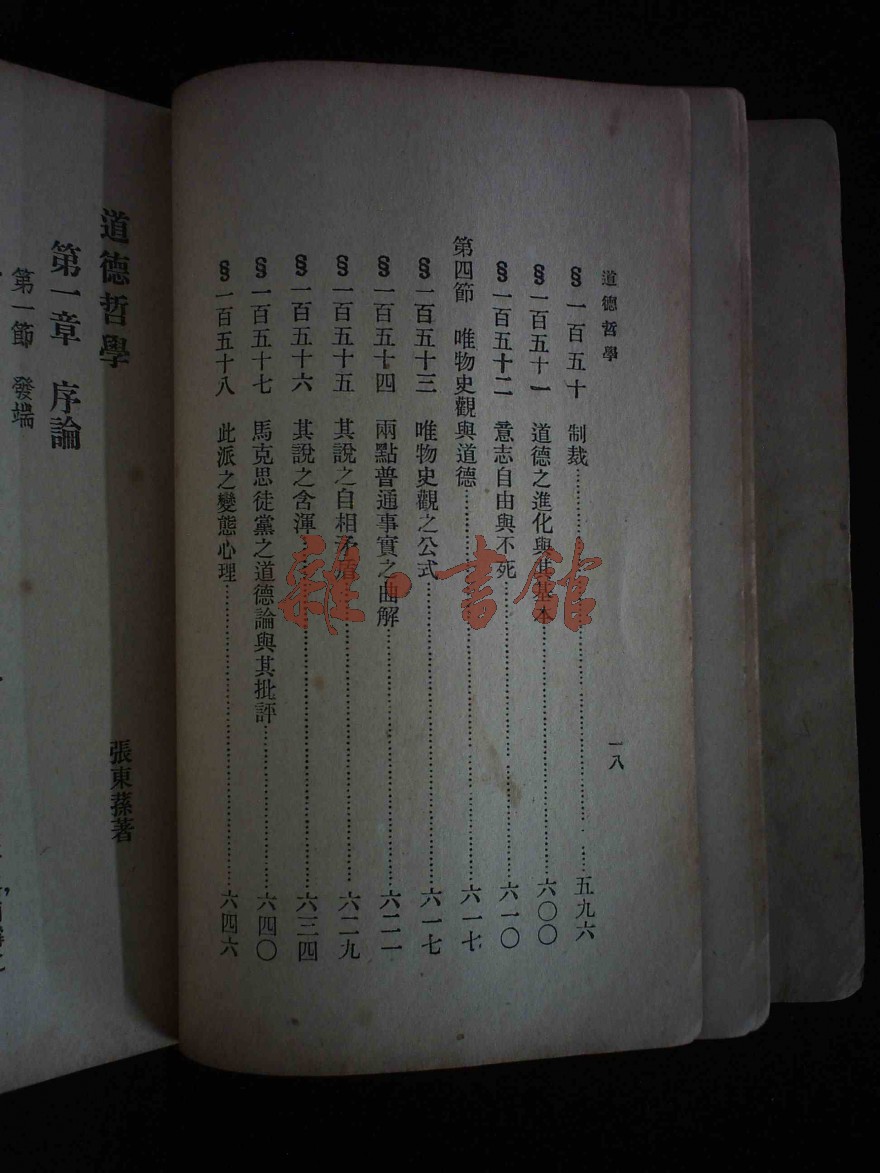 道德哲學
一八
§一百五十 制裁……五九六
§一百五十一 道德之進化與其基本……六〇〇
§一百五十二 意志自由與不死……六一〇
第四節 唯物史觀與道德……六一七
§一百五十三 唯物史觀之公式……六一七
§一百五十四 兩點普通事實之曲解……六二一
§一百五十五 其說之自相矛盾……六二九
§一百五十六 其說之含渾……六三四
§一百五十七 馬克思徒黨之道德論與其批評……六四〇
§一百五十八 此派之變態心理……六四六
道德哲學
張東蓀著
第一章 序論
第一節 發端
雜·書館